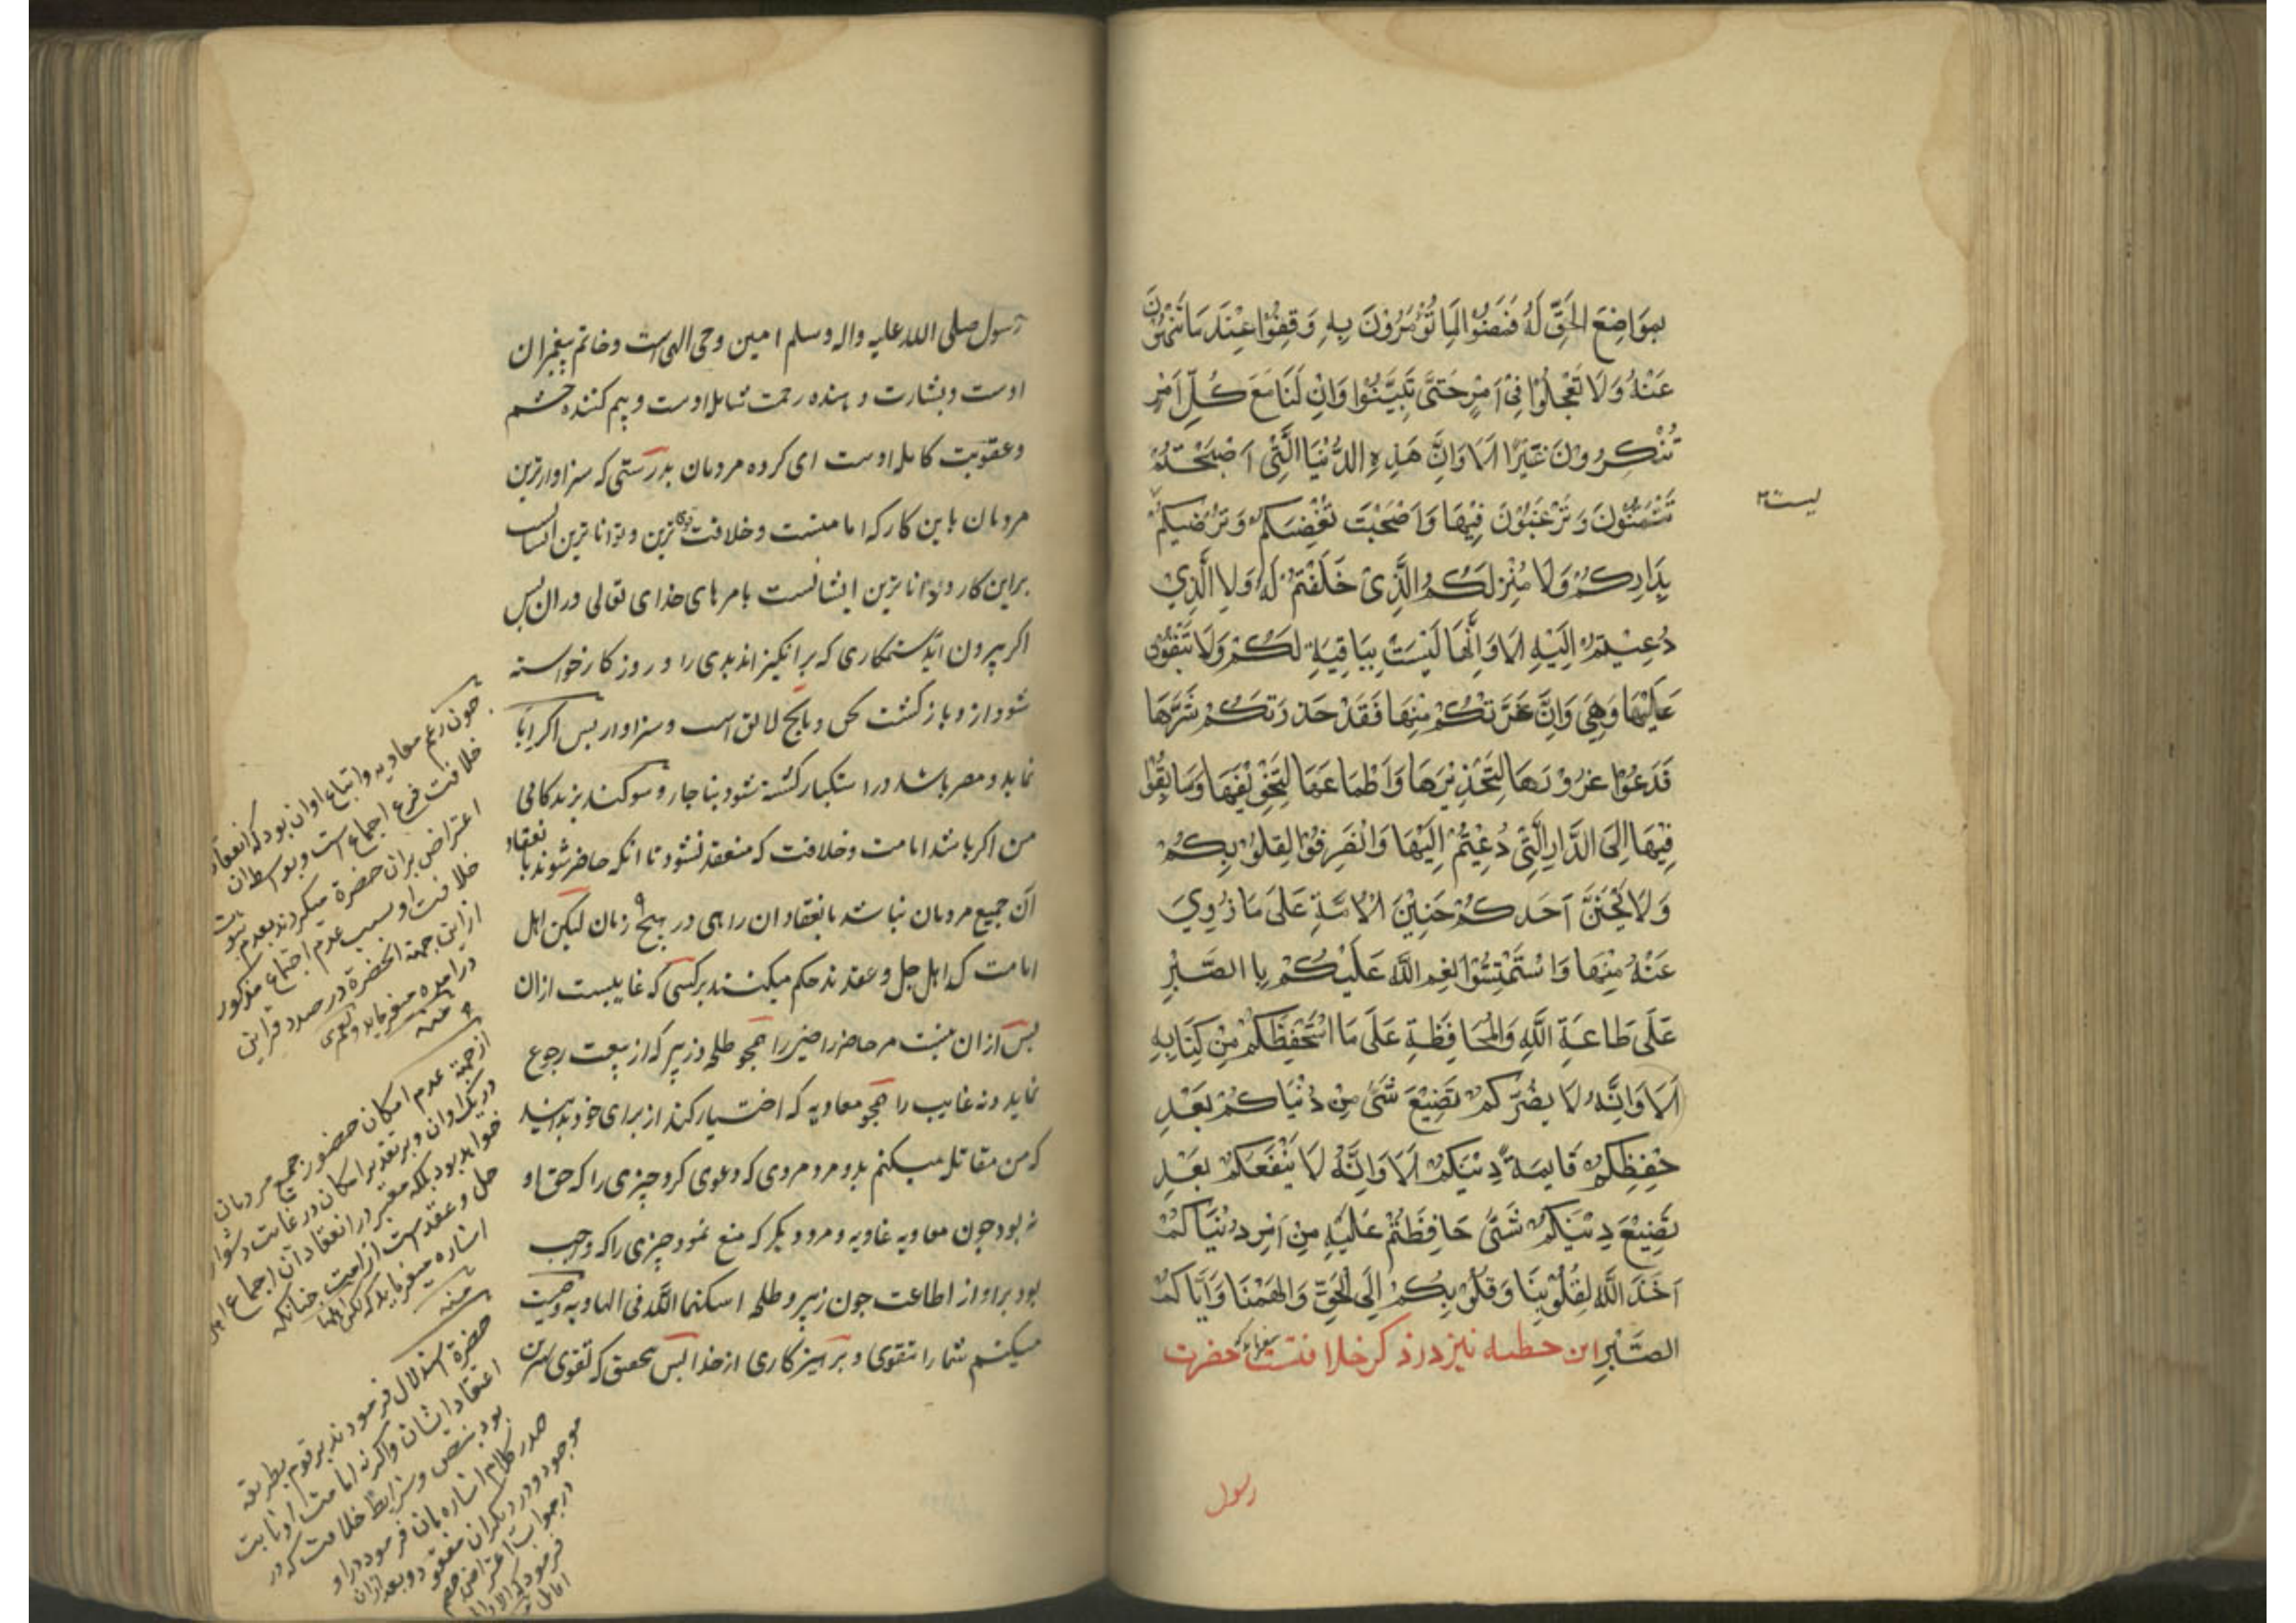 بِمَوَاضِعِ الْحَقِّ لَهُ فَنَصَفُوْا لِمَا تُؤْمَرُوْنَ بِهِ وَقِفُوْا عِنْدَ مَا تُنْهَوْنَ
عَنْهُ وَلَا تَعْجَلُوْا فِيْ اَمْرٍ حَتّٰى تَبَيَّنُوْا وَاِنَّ لَنَا مَعَ كُلِّ اَمْرٍ
تُنْكِرُوْنَ غَيْرًا اَلَا وَاِنَّ هٰذِهِ الدُّنْيَا الَّتِيْ اَصْبَحْتُمْ
تَتَمَنَّوْنَ وَتَرْغَبُوْنَ فِيْهَا وَاَصْبَحَتْ تُغْضِبُكُمْ وَتُرْضِيْكُمْ
ليست
بِدَارِكُمْ وَلَا مَنْزِلِكُمُ الَّذِيْ خُلِقْتُمْ لَهُ وَلَا الَّذِيْ
دُعِيْتُمْ اِلَيْهِ اَلَا وَاِنَّهَا لَيْسَتْ بِبَاقِيَةٍ لَكُمْ وَلَا تَبْقَوْنَ
عَلَيْهَا وَهِيَ وَاِنْ غَرَّتْكُمْ مِنْهَا فَقَدْ حَذَّرَتْكُمْ شَرَّهَا
فَدَعُوْا غُرُوْرَهَا لِتَحْذِيْرِهَا وَاَطْمَاعَهَا لِتَخْوِيْفِهَا وَسَابِقُوْا
فِيْهَا اِلَى الدَّارِ الَّتِيْ دُعِيْتُمْ اِلَيْهَا وَانْصَرِفُوْا لِقُلُوْبِكُمْ
وَلَا يَخِنَّنَّ اَحَدُكُمْ خَنِيْنَ الْاَمَةِ عَلٰى مَا زُوِيَ
عَنْهُ مِنْهَا وَاسْتَتِمُّوْا نِعَمَ اللّٰهِ عَلَيْكُمْ بِا الصَّبْرِ
عَلٰى طَاعَةِ اللّٰهِ وَالْمُحَافَظَةِ عَلٰى مَا اسْتَحْفَظَكُمْ مِنْ كِتَابِهِ
اَلَا وَاِنَّهُ لَا يَضُرُّكُمْ تَضِيْعُ شَيْءٍ مِنْ دُنْيَاكُمْ بَعْدَ
حِفْظِكُمْ قَايِمَةَ دِيْنِكُمْ اَلَا وَاِنَّهُ لَا يَنْفَعُكُمْ بَعْدَ
تَضِيْعِ دِيْنِكُمْ شَيْءٌ حَافَظْتُمْ عَلَيْهِ مِنْ اَمْرِ دُنْيَاكُمْ
اَخَذَ اللّٰهُ بِقُلُوْبِنَا وَقُلُوْبِكُمْ اِلَى الْحَقِّ وَاَلْهَمَنَا وَاِيَّاكُمُ
الصَّبْرَ این خطبه نیز در ذکر خلافت حضرت
رسول
رسول صلی الله علیه واله وسلم امین وحی الهی است وخاتم پیغمبران
اوست وبشارت دهنده رحمت شامل اوست وبیم کننده خشم
وعقوبت کامل اوست ای کروه مردمان بدرستی که سزاوارترین
مردمان باین کار که امامتست وخلافت قوی ترین وتواناترین ایشانست
براین کار وداناترین ایشانست بامرهای خدای تعالی در ان پس
اکر بیرون اید ستمکاری که برانکیزاند بدی را در روز کار خواسته
شود از و باز کشت بحق وبانچه لایق است وسزاوار پس اکر ابا
نماید ومصر باشد در استکبار کشته شود بناچار وسوکند بزندکانی
من اکر باشد امامت وخلافت که منعقد نشود تا انکه حاضر شوند بانعقاد
آن جمیع مردمان نباشد بانعقاد ان راهی در هیچ زمان لیکن اهل
امامت که اهل حل وعقدند حکم میکنند بر کسی که غایبست ازان
پس ازان نیست مر حاضر را همچو طلحه وزبیر که از بیعت رجوع
نماید ونه غایب را همچو معاویه که اختیار کند از برای خود بدانید
که من مقاتله میکنم بدو مرد مردی که دعوی کرد چیزی را که حق او
نه بود چون معاویه غاویه ومرد دیکر که منع نمود چیزی را که واجب
بود براو از اطاعت چون زبیر وطلحه اسکنهما الله فی الهاویه وصیت
میکنم شما را بتقوی وپرهیزکاری از خدا پس بتحقیق که تقوی بهترین
چون زعم معاویه واتباع اوان بود که انعقاد
خلافت فرع اجماع است وبواسطه ان
اعتراض بران حضرة میکردند بعدم ثبوت
خلافت او بسبب عدم اجتماع مذکور
ازاین جهة انحضرة در صدد
در امده میفرماید ولعمری
منه
ازجهة عدم امکان حضور جمیع مردمان
در یک اوان وبر تقدیر امکان در غایت دشوار
خواهد بود بلکه معتبر در انعقاد آن اجماع اهل
حل وعقد است از امت چنانکه
اشاره میفرماید که لکن اهلها
منه
حضرة استدلال فرمودند بر قوم بطریقه
اعتقاد ایشان واکرنه امامت او ثابت
بود بنص وشرایط خلافت که در
صدر کلام اشاره بان فرمود در او
موجود ودر دیکران مفقود وبعد ازان
در جواب اعتراض خصم